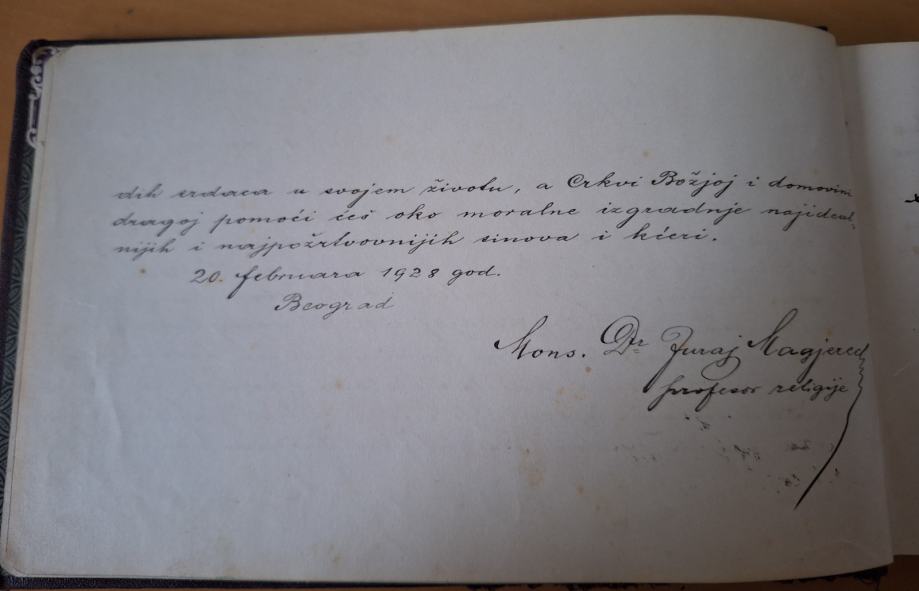 dih srdaca u svojem životu, a Crkvi Božjoj i domovini
dragoj pomoći ćeš oko moralne izgradnje najideal-
nijih i najpožrtvovnijih sinova i kćeri.
20. februara 1928 god.
Beograd
Mons. Dr Juraj Magjerec
profesor religije